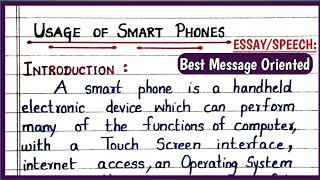 USAGE OF SMART PHONES
ESSAY/SPEECH:
Best Message Oriented
INTRODUCTION :
A smart phone is a handheld
electronic device which can perform
many of the functions of computer,
with a Touch Screen interface,
internet access, an Operating System